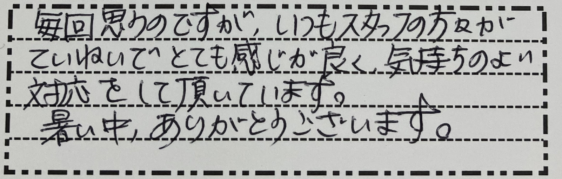 毎回思うのですが、いつもスタッフの方々が
ていねいでとても感じが良く、気持ちのよい
対応をして頂いています。
暑い中、ありがとうございます。